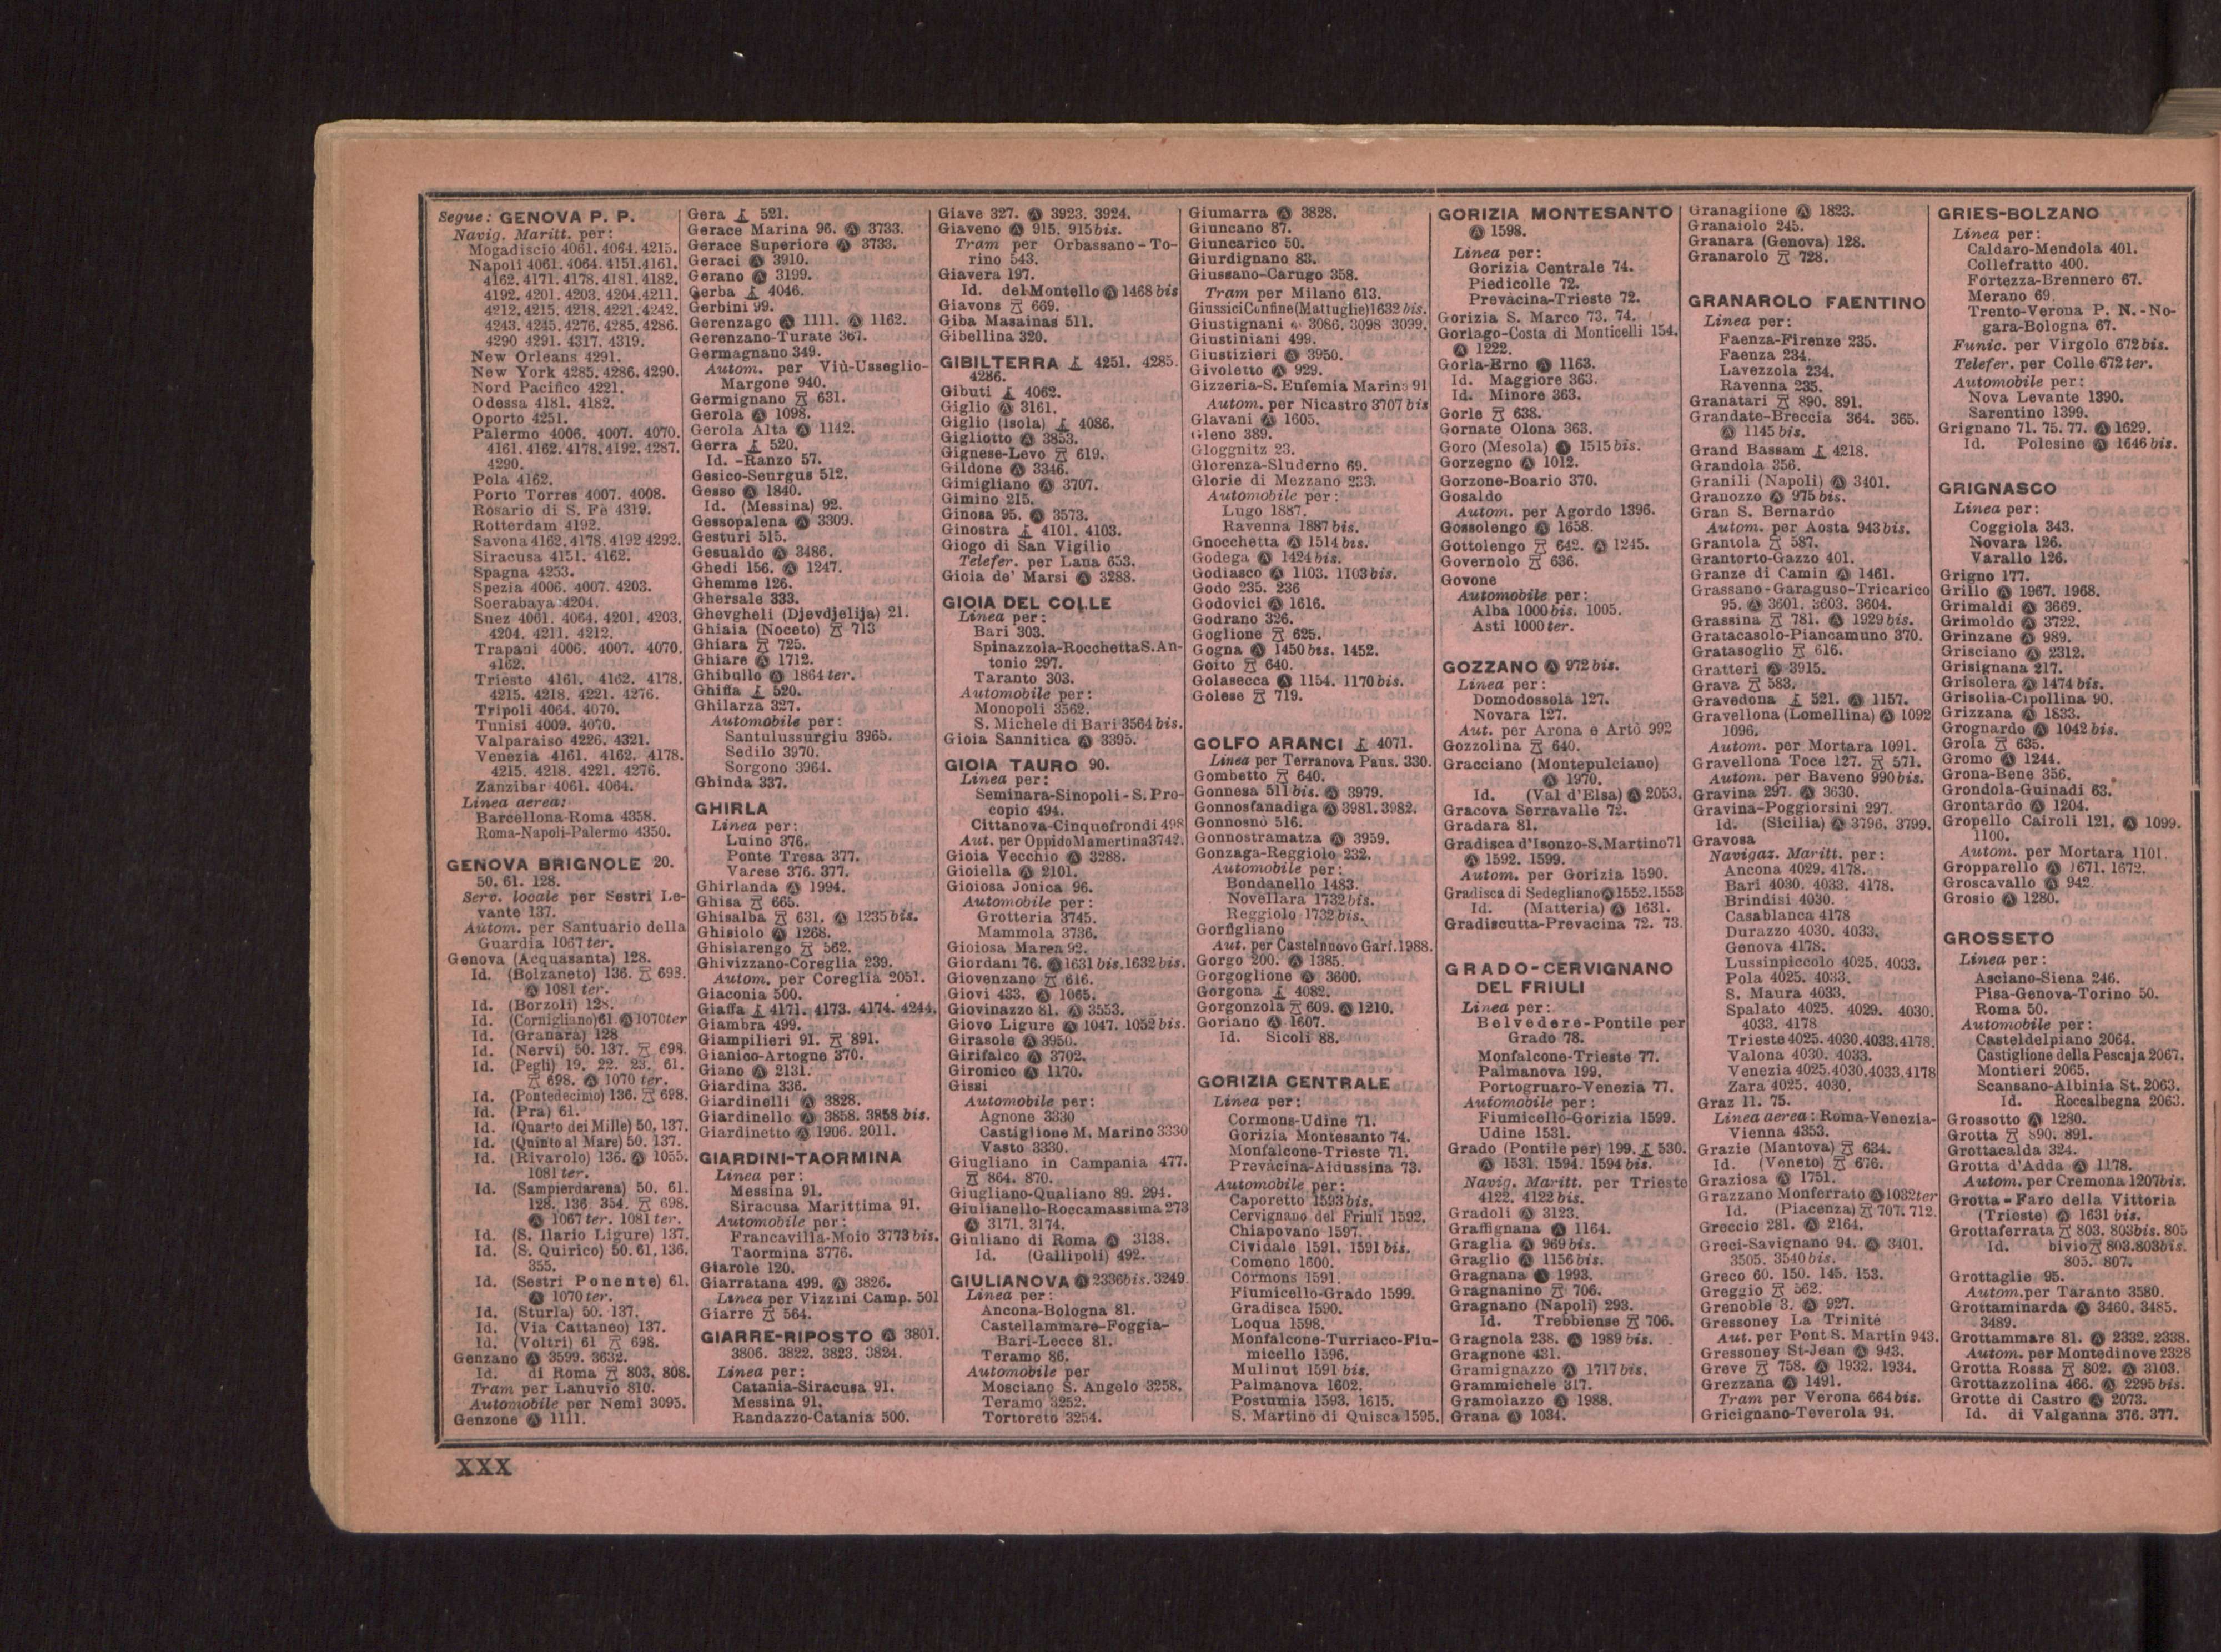 Segue: GENOVA P. P.
Navig. Maritt. per:
Mogadiscio 4061. 4064. 4215.
Napoli 4061. 4064. 4151. 4161.
4162. 4171. 4178. 4181. 4182.
4192. 4201. 4203. 4204. 4211.
4212. 4215. 4218. 4221. 4242.
4243. 4245. 4276. 4285. 4286.
4290 4291. 4317. 4319.
New Orleans 4291.
New York 4285. 4286. 4290.
Nord Pacifico 4221.
Odessa 4181. 4182.
Oporto 4251.
Palermo 4006. 4007. 4070.
4161. 4162. 4178. 4192. 4287.
4290.
Pola 4162.
Porto Torres 4007. 4008.
Rosario di S. Fè 4319.
Rotterdam 4192.
Savona 4162. 4178. 4192 4292.
Siracusa 4151. 4162.
Spagna 4253.
Spezia 4006. 4007. 4203.
Soerabaya 4204.
Suez 4061. 4064. 4201. 4203.
4204. 4211. 4212.
Trapani 4006. 4007. 4070.
4162.
Trieste 4161. 4162. 4178.
4215. 4218. 4221. 4276.
Tripoli 4064. 4070.
Tunisi 4009. 4070.
Valparaiso 4226. 4321.
Venezia 4161. 4162. 4178.
4215. 4218. 4221. 4276.
Zanzibar 4061. 4064.
Linea aerea:
Barcellona-Roma 4358.
Roma-Napoli-Palermo 4350.
GENOVA BRIGNOLE 20.
50. 61. 128.
Serv. locale per Sestri Le-
vante 137.
Autom. per Santuario della
Guardia 1067 ter.
Genova (Acquasanta) 128.
Id. (Bolzaneto) 136. 698.
Ⓐ 1081 ter.
Id. (Borzoli) 128.
Id. (Cornigliano) 61. Ⓐ 1070 ter
Id. (Granara) 128
Id. (Nervi) 50. 137. 698.
Id. (Pegli) 19. 22. 23. 61.
698. Ⓐ 1070 ter.
Id. (Pontedecimo) 136. 698.
Id. (Pra) 61.
Id. (Quarto dei Mille) 50, 137.
Id. (Quinto al Mare) 50. 137.
Id. (Rivarolo) 136. Ⓐ 1055.
1081 ter.
Id. (Sampierdarena) 50. 61.
128. 136. 354. 698.
Ⓐ 1067 ter. 1081 ter.
Id. (S. Ilario Ligure) 137.
Id. (S. Quirico) 50. 61. 136.
355.
Id. (Sestri Ponente) 61.
Ⓐ 1070 ter.
Id. (Sturla) 50. 137.
Id. (Via Cattaneo) 137.
Id. (Voltri) 61 698.
Genzano Ⓐ 3599. 3632.
Id. di Roma 803. 808.
Tram per Lanuvio 810.
Automobile per Nemi 3095.
Genzone Ⓐ 1111.
Gera 521.
Gerace Marina 96. Ⓐ 3733.
Gerace Superiore Ⓐ 3733.
Geraci Ⓐ 3910.
Gerano Ⓐ 3199.
Gerba 4046.
Gerbini 99.
Gerenzago Ⓐ 1111. Ⓐ 1162.
Gerenzano-Turate 367.
Germagnano 349.
Autom. per Viù-Usseglio-
Margone 940.
Germignano 631.
Gerola Ⓐ 1098.
Gerola Alta Ⓐ 1142.
Gerra 520.
Id. -Ranzo 57.
Gesico-Seurgus 512.
Gesso Ⓐ 1840.
Id. (Messina) 92.
Gessopalena Ⓐ 3309.
Gesturi 515.
Gesualdo Ⓐ 3486.
Ghedi 156. Ⓐ 1247.
Ghemme 126.
Ghersale 333.
Ghevgheli (Djevdjelija) 21.
Ghiaia (Noceto) 713
Ghiara 725.
Ghiare Ⓐ 1712.
Ghibullo Ⓐ 1864 ter.
Ghiffa 520.
Ghilarza 327.
Automobile per:
Santulussurgiu 3965.
Sedilo 3970.
Sorgono 3964.
Ghinda 337.
GHIRLA
Linea per:
Luino 376.
Ponte Tresa 377.
Varese 376. 377.
Ghirlanda Ⓐ 1994.
Ghisa 665.
Ghisalba 631. Ⓐ 1235 bis.
Ghisiolo Ⓐ 1268.
Ghislarengo 562.
Ghivizzano-Coreglia 239.
Autom. per Coreglia 2051.
Giaconia 500.
Giaffa 4171. 4173. 4174. 4244.
Giambra 499.
Giampilieri 91. 891.
Gianico-Artogne 370.
Giano Ⓐ 2131.
Giardina 336.
Giardinelli Ⓐ 3828.
Giardinello Ⓐ 3858. 3858 bis.
Giardinetto Ⓐ 1906. 2011.
GIARDINI-TAORMINA
Linea per:
Messina 91.
Siracusa Marittima 91.
Automobile per:
Francavilla-Moio 3773 bis.
Taormina 3776.
Giarole 120.
Giarratana 499. Ⓐ 3826.
Linea per Vizzini Camp. 501
Giarre 564.
GIARRE-RIPOSTO Ⓐ 3801.
3806. 3822. 3823. 3824.
Linea per:
Catania-Siracusa 91.
Messina 91.
Randazzo-Catania 500.
Giave 327. Ⓐ 3923. 3924.
Giaveno Ⓐ 915. 915 bis.
Tram per Orbassano-To-
rino 543.
Giavera 197.
Id. del Montello Ⓐ 1468 bis
Giavons 669.
Giba Masainas 511.
Gibellina 320.
GIBILTERRA 4251. 4285.
4286.
Gibuti 4062.
Giglio Ⓐ 3161.
Giglio (isola) 4086.
Gigliotto Ⓐ 3853.
Gignese-Levo 619.
Gildone Ⓐ 3346.
Gimigliano Ⓐ 3707.
Gimino 215.
Ginosa 95. Ⓐ 3573.
Ginostra 4101. 4103.
Giogo di San Vigilio
Telefer. per Lana 653.
Gioia de' Marsi Ⓐ 3288.
GIOIA DEL COLLE
Linea per:
Bari 303.
Spinazzola-Rocchetta S. An-
tonio 297.
Taranto 303.
Automobile per:
Monopoli 3562.
S. Michele di Bari 3564 bis.
Gioia Sannitica Ⓐ 3395.
GIOIA TAURO 90.
Linea per:
Seminara-Sinopoli-S. Pro-
copio 494.
Cittanova-Cinquefrondi 498
Aut. per Oppido Mamertina 3742.
Gioia Vecchio Ⓐ 3288.
Gioiella Ⓐ 2101.
Gioiosa Jonica 96.
Automobile per:
Grotteria 3745.
Mammola 3736.
Gioiosa Marea 92.
Giordani 76. Ⓐ 1631 bis. 1632 bis.
Giovenzano 616.
Giovi 433. Ⓐ 1065.
Giovinazzo 81. Ⓐ 3553.
Giovo Ligure Ⓐ 1047. 1052 bis.
Girasole Ⓐ 3950.
Girifalco Ⓐ 3702.
Gironico Ⓐ 1170.
Gissi
Automobile per:
Agnone 3330
Castiglione M. Marino 3330
Vasto 3330.
Giugliano in Campania 477.
864. 870.
Giugliano-Qualiano 89. 294.
Giulianello-Roccamassima 273
Ⓐ 3171. 3174.
Giuliano di Roma Ⓐ 3138.
Id. (Gallipoli) 492.
GIULIANOVA Ⓐ 2336 bis. 3249.
Linea per:
Ancona-Bologna 81.
Castellammare-Foggia-
Bari-Lecce 81.
Teramo 86.
Automobile per
Mosciano S. Angelo 3258.
Teramo 3252.
Tortoreto 3254.
Giumarra Ⓐ 3828.
Giuncano 87.
Giuncarico 50.
Giurdignano 83.
Giussano-Carugo 358.
Tram per Milano 613.
Giussici Confine (Mattuglie) 1632 bis.
Giustignani 3086. 3098 3099.
Giustiniani 499.
Giustizieri Ⓐ 3950.
Givoletto Ⓐ 929.
Gizzeria-S. Eufemia Marina 91
Autom. per Nicastro 3707 bis
Glavani Ⓐ 1605.
Gleno 389.
Gloggnitz 23.
Glorenza-Sluderno 69.
Glorie di Mezzano 233.
Automobile per:
Lugo 1887.
Ravenna 1887 bis.
Gnocchetta Ⓐ 1514 bis.
Godega Ⓐ 1424 bis.
Godiasco Ⓐ 1103. 1103 bis.
Godo 235. 236
Godovici Ⓐ 1616.
Godrano 326.
Goglione 625.
Gogna Ⓐ 1450 bis. 1452.
Goito 640.
Golasecca Ⓐ 1154. 1170 bis.
Golese 719.
GOLFO ARANCI 4071.
Linea per Terranova Paus. 330.
Gombetto 640.
Gonnesa 511 bis. Ⓐ 3979.
Gonnosfanadiga Ⓐ 3981. 3982.
Gonnosnò 516.
Gonnostramatza Ⓐ 3959.
Gonzaga-Reggiolo 232.
Automobile per:
Bondanello 1483.
Novellara 1732 bis.
Reggiolo 1732 bis.
Gorfigliano
Aut. per Castelnuovo Garf. 1988.
Gorgo 200. Ⓐ 1385.
Gorgoglione Ⓐ 3600.
Gorgona 4082.
Gorgonzola 609. Ⓐ 1210.
Goriano Ⓐ 1607.
Id. Sicoli 88.
GORIZIA CENTRALE
Linea per:
Cormons-Udine 71.
Gorizia Montesanto 74.
Monfalcone-Trieste 71.
Prevàcina-Aidussina 73.
Automobile per:
Caporetto 1593 bis.
Cervignano del Friuli 1592.
Chiapovano 1597.
Cividale 1591. 1591 bis.
Comeno 1600.
Cormons 1591.
Fiumicello-Grado 1599.
Gradisca 1590.
Loqua 1598.
Monfalcone-Turriaco-Fiu-
micello 1596.
Mulinut 1591 bis.
Palmanova 1602.
Postumia 1593. 1615.
S. Martino di Quisca 1595.
GORIZIA MONTESANTO
Ⓐ 1598.
Linea per:
Gorizia Centrale 74.
Piedicolle 72.
Prevàcina-Trieste 72.
Gorizia S. Marco 73. 74.
Gorlago-Costa di Monticelli 154.
Ⓐ 1222.
Gorla-Erno Ⓐ 1163.
Id. Maggiore 363.
Id. Minore 363.
Gorle 638.
Gornate Olona 363.
Goro (Mesola) Ⓐ 1515 bis.
Gorzegno Ⓐ 1012.
Gorzone-Boario 370.
Gosaldo
Autom. per Agordo 1396.
Gossolengo Ⓐ 1658.
Gottolengo 642. Ⓐ 1245.
Governolo 636.
Govone
Automobile per:
Alba 1000 bis. 1005.
Asti 1000 ter.
GOZZANO Ⓐ 972 bis.
Linea per:
Domodossola 127.
Novara 127.
Aut. per Arona e Artò 992
Gozzolina 640.
Gracciano (Montepulciano)
Ⓐ 1970.
Id. (Val d'Elsa) Ⓐ 2053.
Gracova Serravalle 72.
Gradara 81.
Gradisca d'Isonzo-S. Martino 71
Ⓐ 1592. 1599.
Autom. per Gorizia 1590.
Gradisca di Sedegliano Ⓐ 1552. 1553
Id. (Matteria) Ⓐ 1631.
Gradiscutta-Prevacina 72. 73.
GRADO-CERVIGNANO
DEL FRIULI
Linea per:
Belvedere-Pontile per
Grado 78.
Monfalcone-Trieste 77.
Palmanova 199.
Portogruaro-Venezia 77.
Automobile per:
Fiumicello-Gorizia 1599.
Udine 1531.
Grado (Pontile per) 199. 530.
Ⓐ 1531. 1594. 1594 bis.
Navig. Maritt. per Trieste
4122. 4122 bis.
Gradoli Ⓐ 3123.
Graffignana Ⓐ 1164.
Graglia Ⓐ 969 bis.
Graglio Ⓐ 1156 bis.
Gragnana Ⓐ 1993.
Gragnanino 706.
Gragnano (Napoli) 293.
Id. Trebbiense 706.
Gragnola 238. Ⓐ 1989 bis.
Gragnone 431.
Gramignazzo Ⓐ 1717 bis.
Grammichele 317.
Gramolazzo Ⓐ 1988.
Grana Ⓐ 1034.
Granaglione Ⓐ 1823.
Granaiolo 245.
Granara (Genova) 128.
Granarolo 728.
GRANAROLO FAENTINO
Linea per:
Faenza-Firenze 235.
Faenza 234.
Lavezzola 234.
Ravenna 235.
Granatari 890. 891.
Grandate-Breccia 364. 365.
Ⓐ 1145 bis.
Grand Bassam 4218.
Grandola 356.
Granili (Napoli) Ⓐ 3401.
Granozzo Ⓐ 975 bis.
Gran S. Bernardo
Autom. per Aosta 943 bis.
Grantola 587.
Grantorto-Gazzo 401.
Granze di Camin Ⓐ 1461.
Grassano-Garaguso-Tricarico
95. Ⓐ 3601. 3603. 3604.
Grassina 781. Ⓐ 1929 bis.
Gratacasolo-Piancamuno 370.
Gratasoglio 616.
Gratteri Ⓐ 3915.
Grava 583.
Gravedona 521. Ⓐ 1157.
Gravellona (Lomellina) Ⓐ 1092
1096.
Autom. per Mortara 1091.
Gravellona Toce 127. 571.
Autom. per Baveno 990 bis.
Gravina 297. Ⓐ 3630.
Gravina-Poggiorsini 297.
Id. (Sicilia) Ⓐ 3796. 3799.
Gravosa
Navigaz. Maritt. per:
Ancona 4029. 4178.
Bari 4030. 4033. 4178.
Brindisi 4030.
Casablanca 4178
Durazzo 4030. 4033.
Genova 4178.
Lussinpiccolo 4025. 4033.
Pola 4025. 4033.
S. Maura 4033.
Spalato 4025. 4029. 4030.
4033. 4178
Trieste 4025. 4030. 4033. 4178.
Valona 4030. 4033.
Venezia 4025. 4030. 4033. 4178
Zara 4025. 4030.
Graz 11. 75.
Linea aerea: Roma-Venezia-
Vienna 4353.
Grazie (Mantova) 634.
Id. (Veneto) 676.
Graziosa Ⓐ 1751.
Grazzano Monferrato Ⓐ 1032 ter
Id. (Piacenza) 707. 712.
Greccio 281. Ⓐ 2164.
Greci-Savignano 94. Ⓐ 3401.
3505. 3540 bis.
Greco 60. 150. 145. 153.
Greggio 562.
Grenoble 3. Ⓐ 927.
Gressoney La Trinité
Aut. per Pont S. Martin 943.
Gressoney St-Jean Ⓐ 943.
Greve 758. Ⓐ 1932. 1934.
Grezzana Ⓐ 1491.
Tram per Verona 664 bis.
Gricignano-Teverola 94.
GRIES-BOLZANO
Linea per:
Caldaro-Mendola 401.
Collefratto 400.
Fortezza-Brennero 67.
Merano 69.
Trento-Verona P. N.-No-
gara-Bologna 67.
Funic. per Virgolo 672 bis.
Telefer. per Colle 672 ter.
Automobile per:
Nova Levante 1390.
Sarentino 1399.
Grignano 71. 75. 77. Ⓐ 1629.
Id. Polesine Ⓐ 1646 bis.
GRIGNASCO
Linea per:
Coggiola 343.
Novara 126.
Varallo 126.
Grigno 177.
Grilio Ⓐ 1967. 1968.
Grimaldi Ⓐ 3669.
Grimoldo Ⓐ 3722.
Grinzane Ⓐ 989.
Grisciano Ⓐ 2312.
Grisignana 217.
Grisolera Ⓐ 1474 bis.
Grisolia-Cipollina 90.
Grizzana Ⓐ 1833.
Grognardo Ⓐ 1042 bis.
Grola 635.
Gromo Ⓐ 1244.
Grona-Bene 356.
Grondola-Guinadi 63.
Grontardo Ⓐ 1204.
Gropello Cairoli 121. Ⓐ 1099.
1100.
Autom. per Mortara 1101.
Gropparello Ⓐ 1671. 1672.
Groscavallo Ⓐ 942
Grosio Ⓐ 1280.
GROSSETO
Linea per:
Asciano-Siena 246.
Pisa-Genova-Torino 50.
Roma 50.
Automobile per:
Casteldelpiano 2064.
Castiglione della Pescaja 2067.
Montieri 2065.
Scansano-Albinia St. 2063.
Id. Roccalbegna 2063.
Grossotto Ⓐ 1280.
Grotta 890. 891.
Grottacalda 324.
Grotta d'Adda Ⓐ 1178.
Autom. per Cremona 1207 bis.
Grotta-Faro della Vittoria
(Trieste) Ⓐ 1631 bis.
Grottaferrata 803. 803 bis. 805
Id. bivio 803. 803 bis.
805. 807.
Grottaglie 95.
Autom. per Taranto 3580.
Grottaminarda Ⓐ 3460. 3485.
3489.
Grottammare 81. Ⓐ 2332. 2338.
Autom. per Montedinove 2328
Grotta Rossa 802. Ⓐ 3103.
Grottazzolina 466. Ⓐ 2295 bis.
Grotte di Castro Ⓐ 2073.
Id. di Valganna 376. 377.
XXX